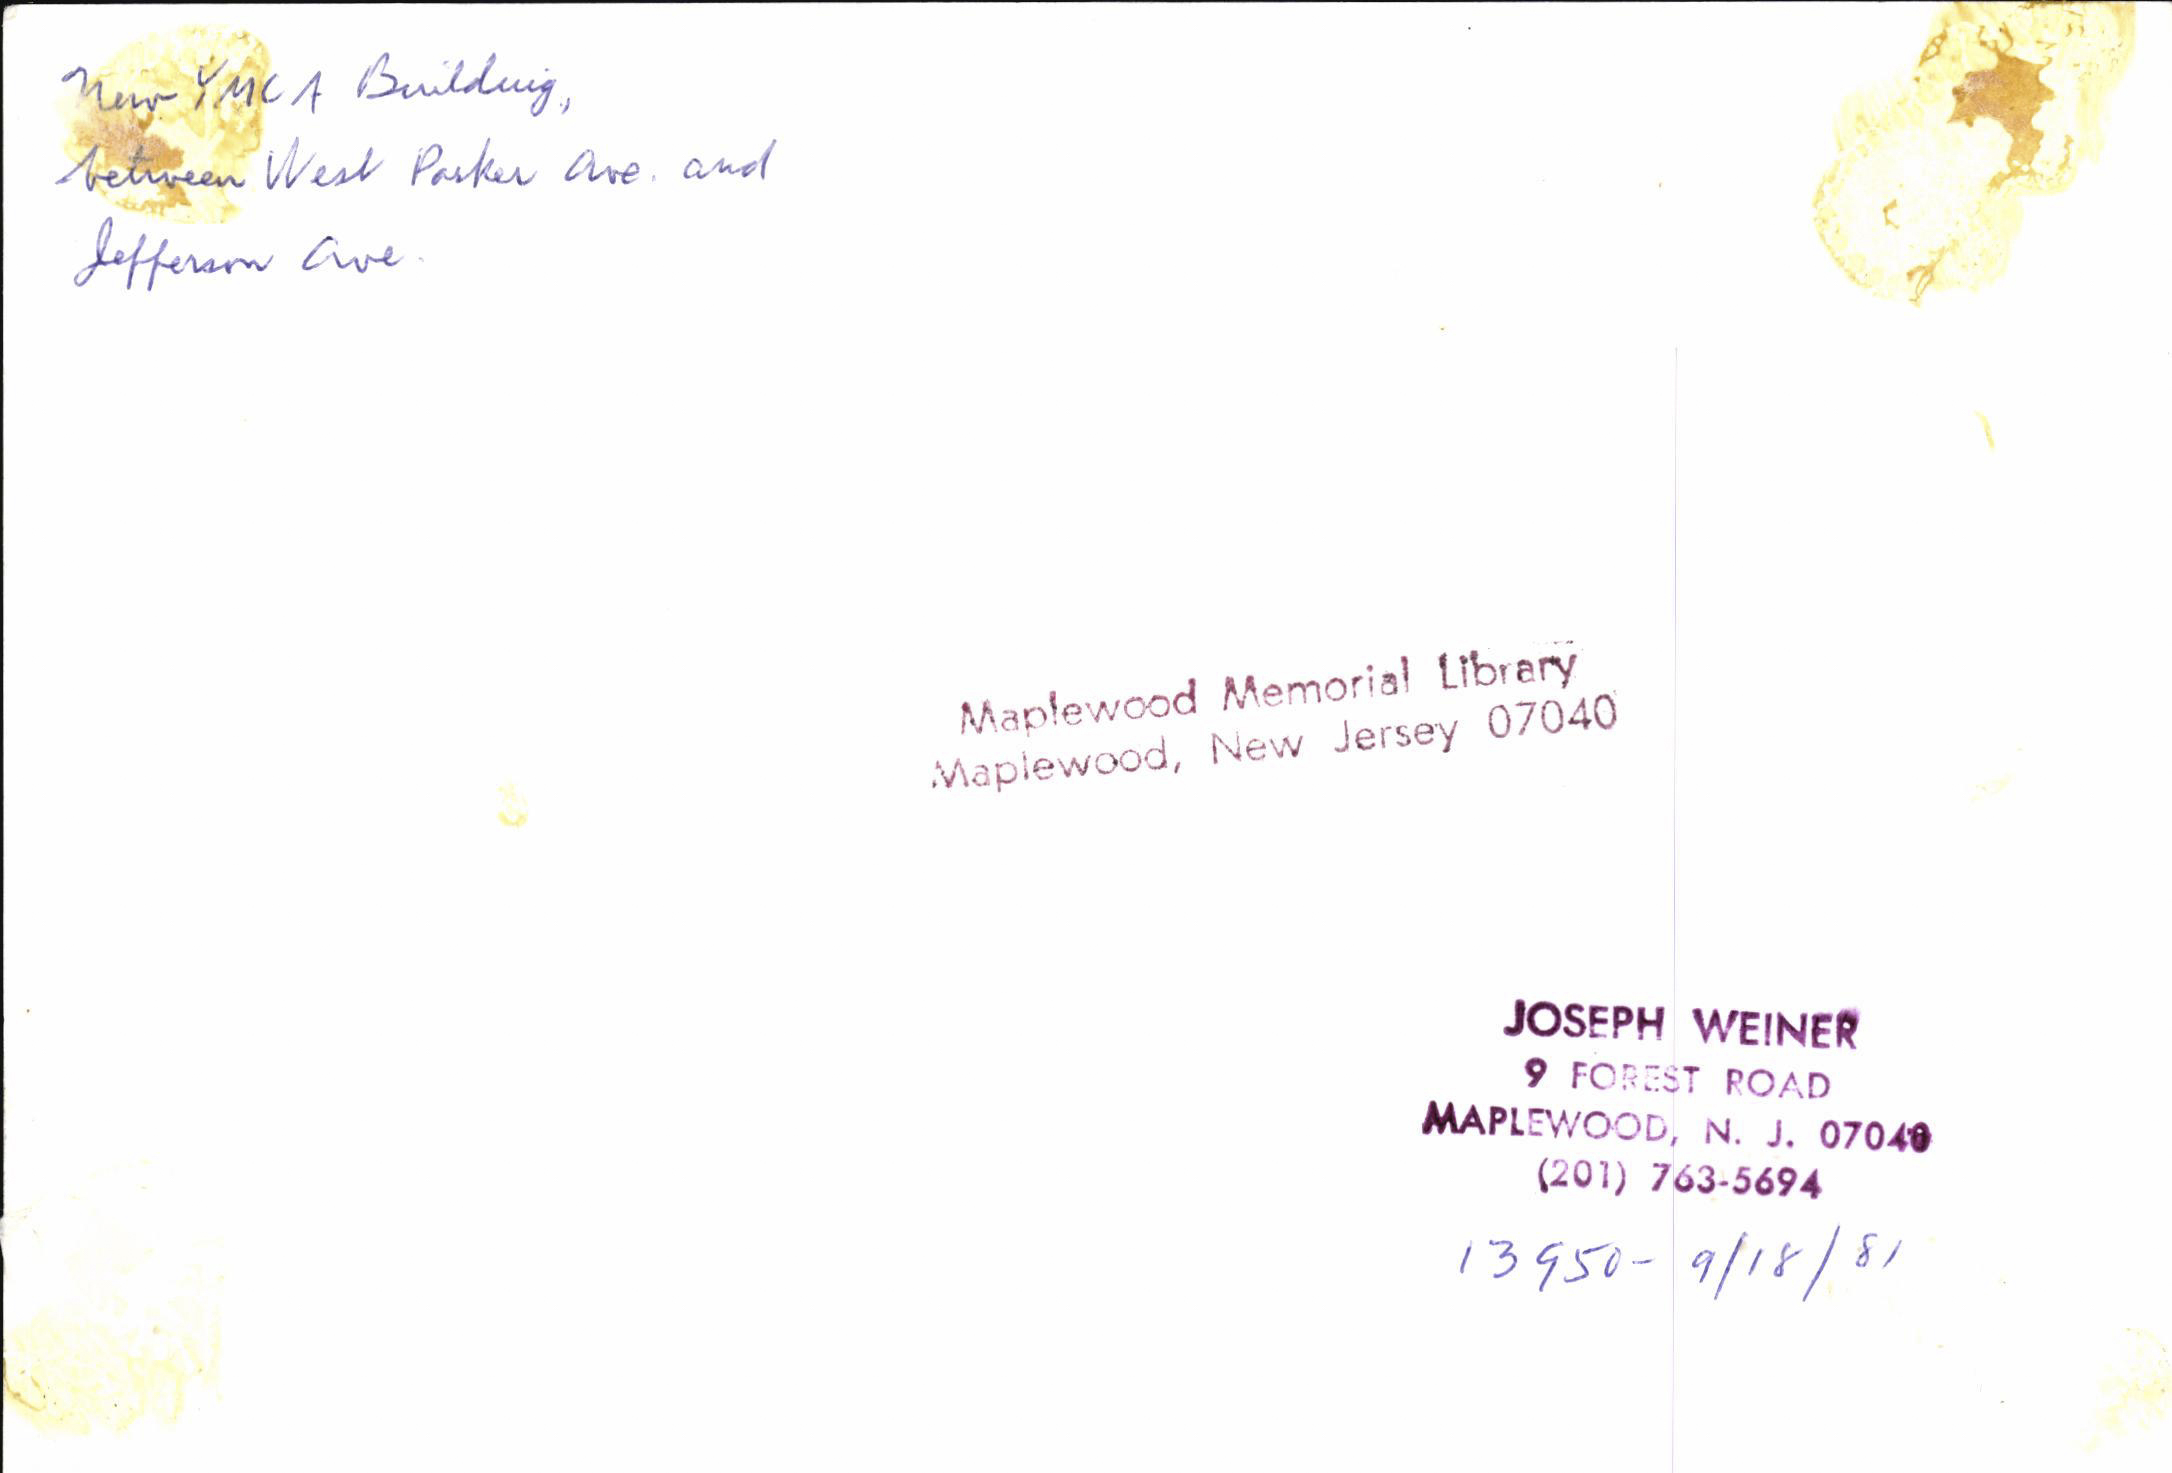 New YMCA Building,
between West Parker Ave. and
Jefferson Ave.
Maplewood Memorial Library
Maplewood, New Jersey 07040
JOSEPH WEINER
9 FOREST ROAD
MAPLEWOOD, N. J. 07040
(201) 763-5694
13950- 9/18/81